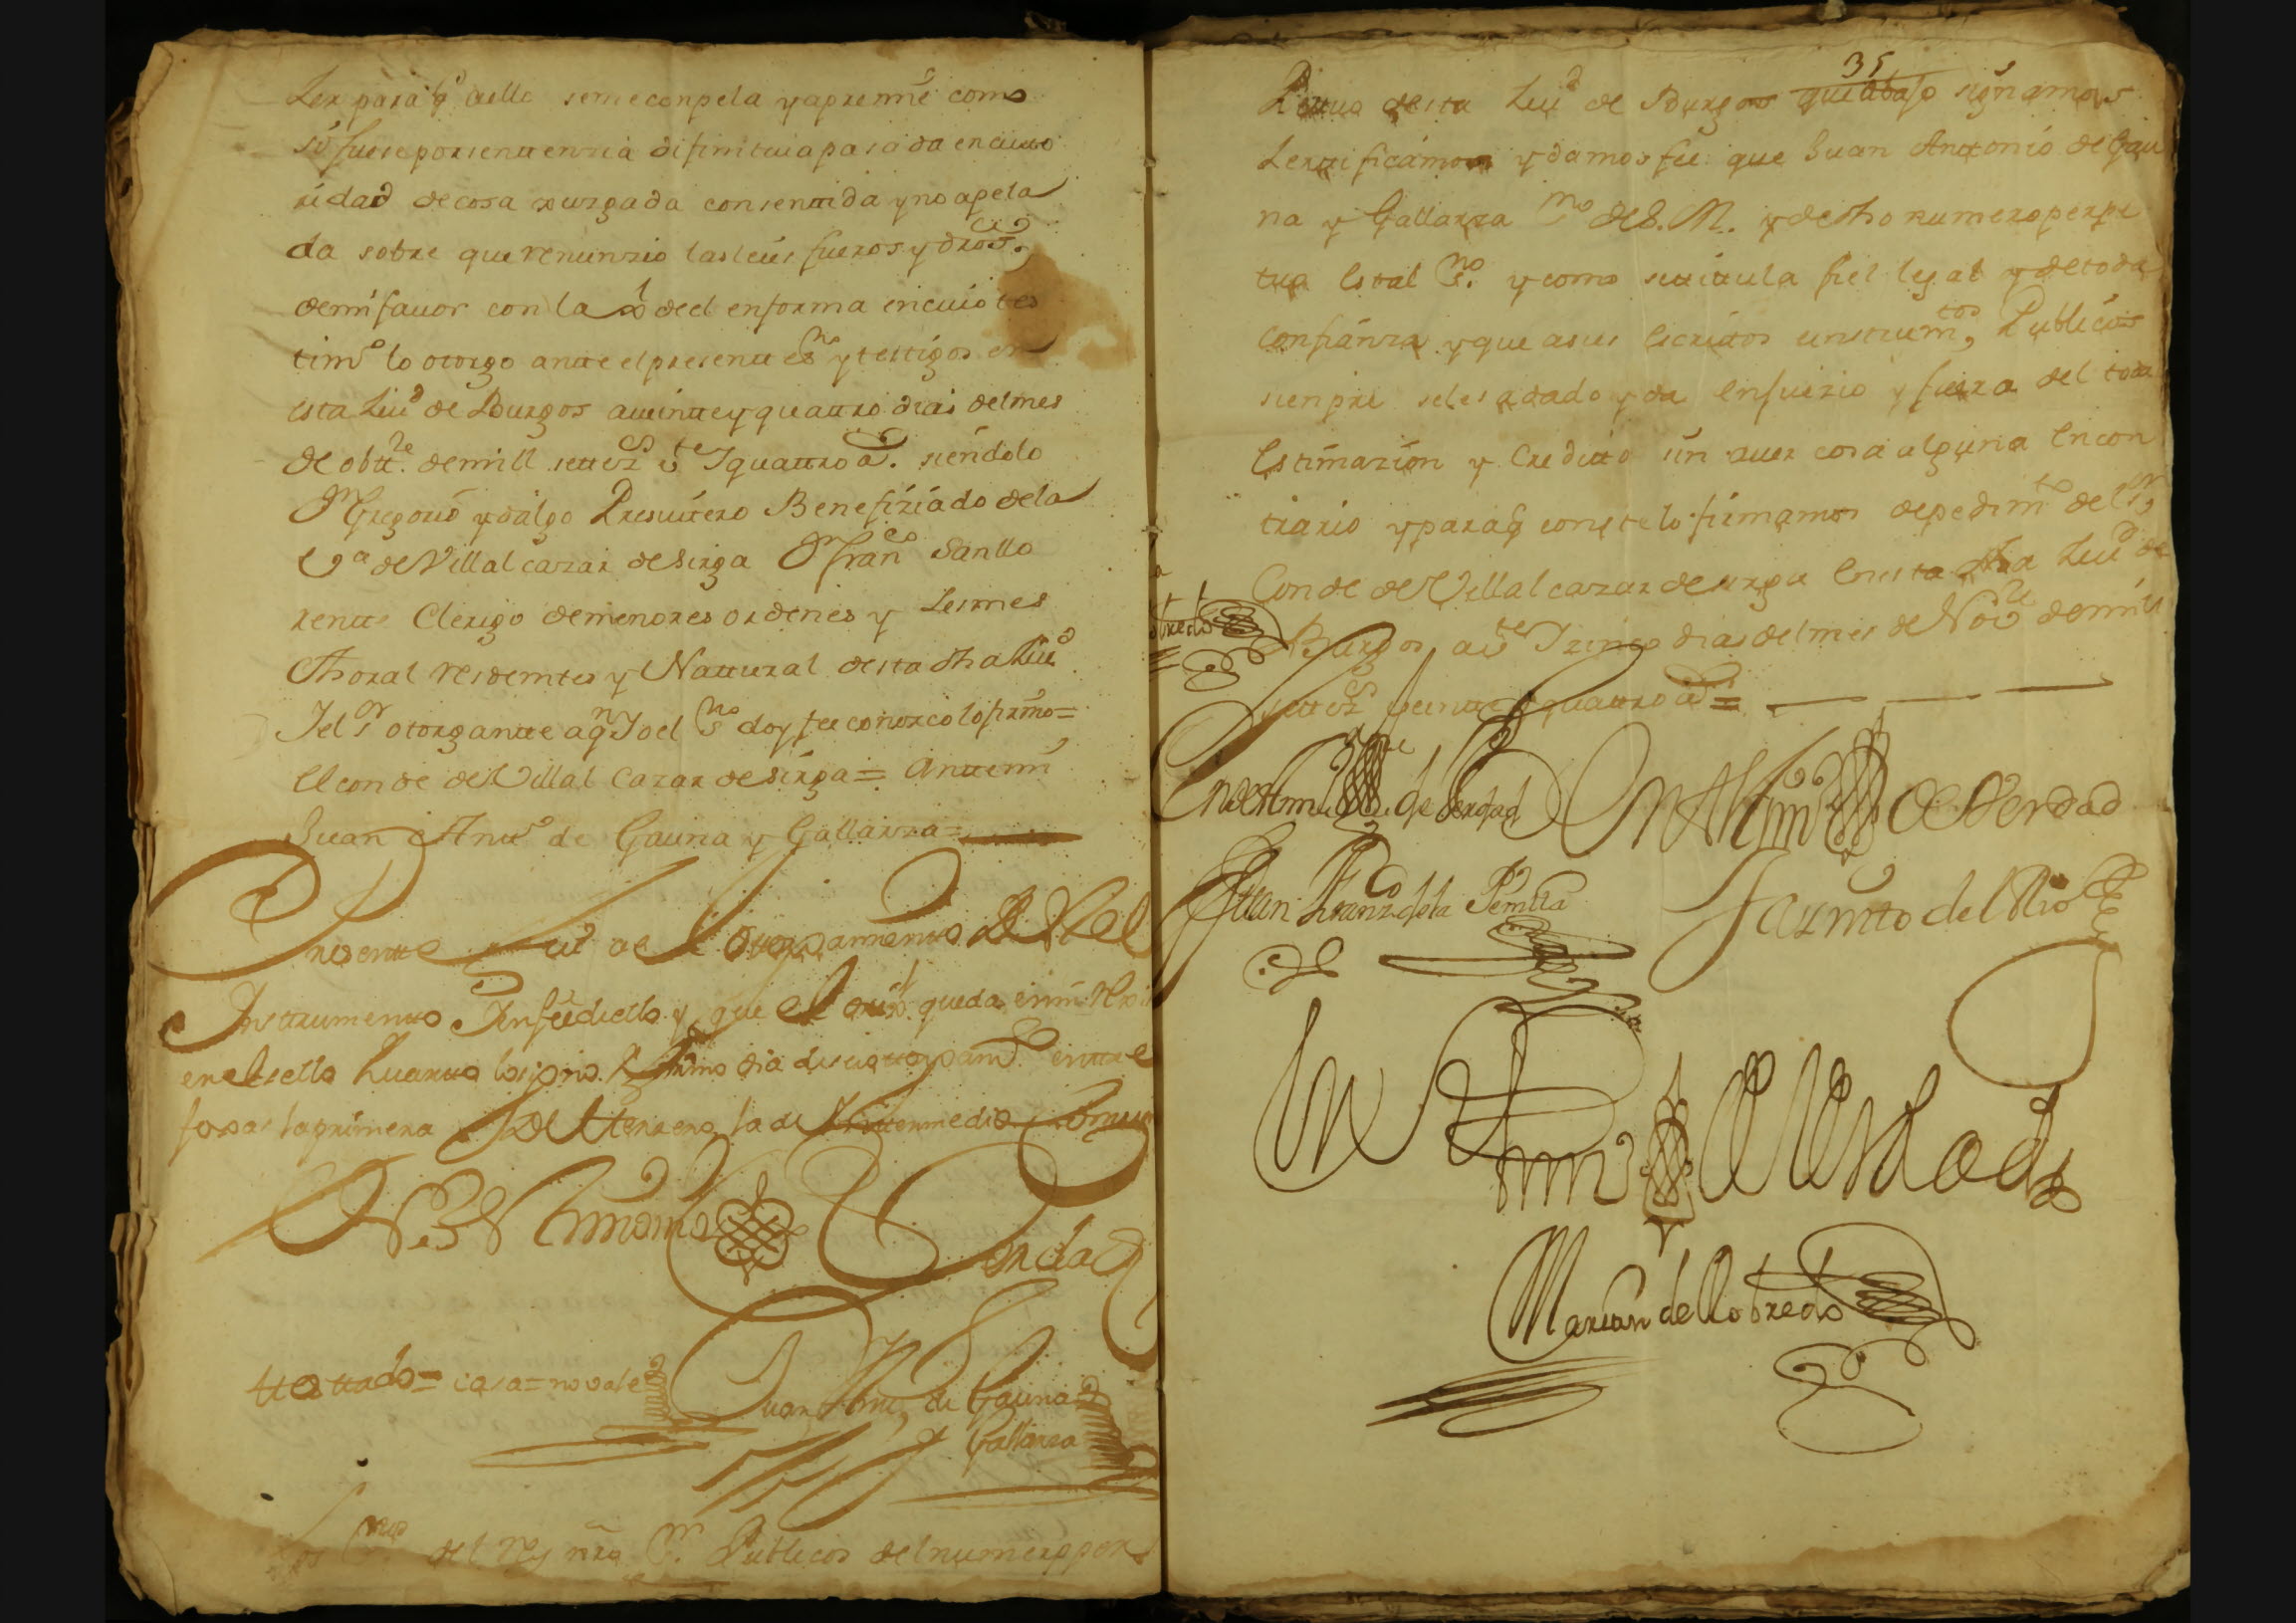 Ser para q̃ aello semeconpela yapremie como
si fuese por sentencia difinitiua pasada en autto
ridad de cosa xuzgada consentida y no apela
da sobre que renunzio las leies fueros y dros.
de mi fauor con la xl deel en forma en cuio tes
timo lo otorgo ante el presente esno y testigos en
esta Ziud de Burgos a ueintte y quattro dias del mes
de obtte. de mill settezs ve Y quattro as. siendolo
Dn Gregorio ydalgo Presuitero Benefiziado de la
va de Villalcazar de sirga Dn Franco San llo
rentte Clerigo de menores ordenes y Lesmes
Thoral residentes y Nattural desta dha Ziud
Y el sr otorgantte a qn Yo el esno doy fee conozco lo firmo=
El conde de Villal Cazar de sirga= Antte mi
Juan Antto de Gauna y Gallarza=
Presentte fui al otorgamiento del
Ynstrumentto Y en fee dello y que el orixl queda en mi
en el sello quartto lo signo firmo dia de su ottorgamto en tres
foxas la primera del terzero, la de Yntermedio comun
En testimonio de Verdad
testtado= casa= no vale
Juan Antto de Gauna
y Gallarza
Los esnos del Rey nro sr. Publicos del numero perp
35
Pettuo desta Ziud de Burgos que abajo signamos
Zertificamos y damos fee que Juan Antonio de Gau
na y Gallarza esno de S. M. y de dho numero perpe
tuo es tal esno. y como se titula fiel legal y de toda
confianza y que a sus escritos instrumtos, Publicos
sienpre se les a dado y da en juizio y fuera del toda
estimazion y creditto sin auer cosa alguna en con
trario y para q̃ conste lo firmamos de pedimto del sr
Conde de Villalcazar de sirga en esta dha Ziud de
Burgos a vte Y zinco dias del mes de Nove de mill
settezs ueintte y quattro as =
En testimo de verdad
En testimo de Verdad
Juan Franz de la Pemilla
Jazinto del Rio
En testimo de Verdad
Martin de Robredo